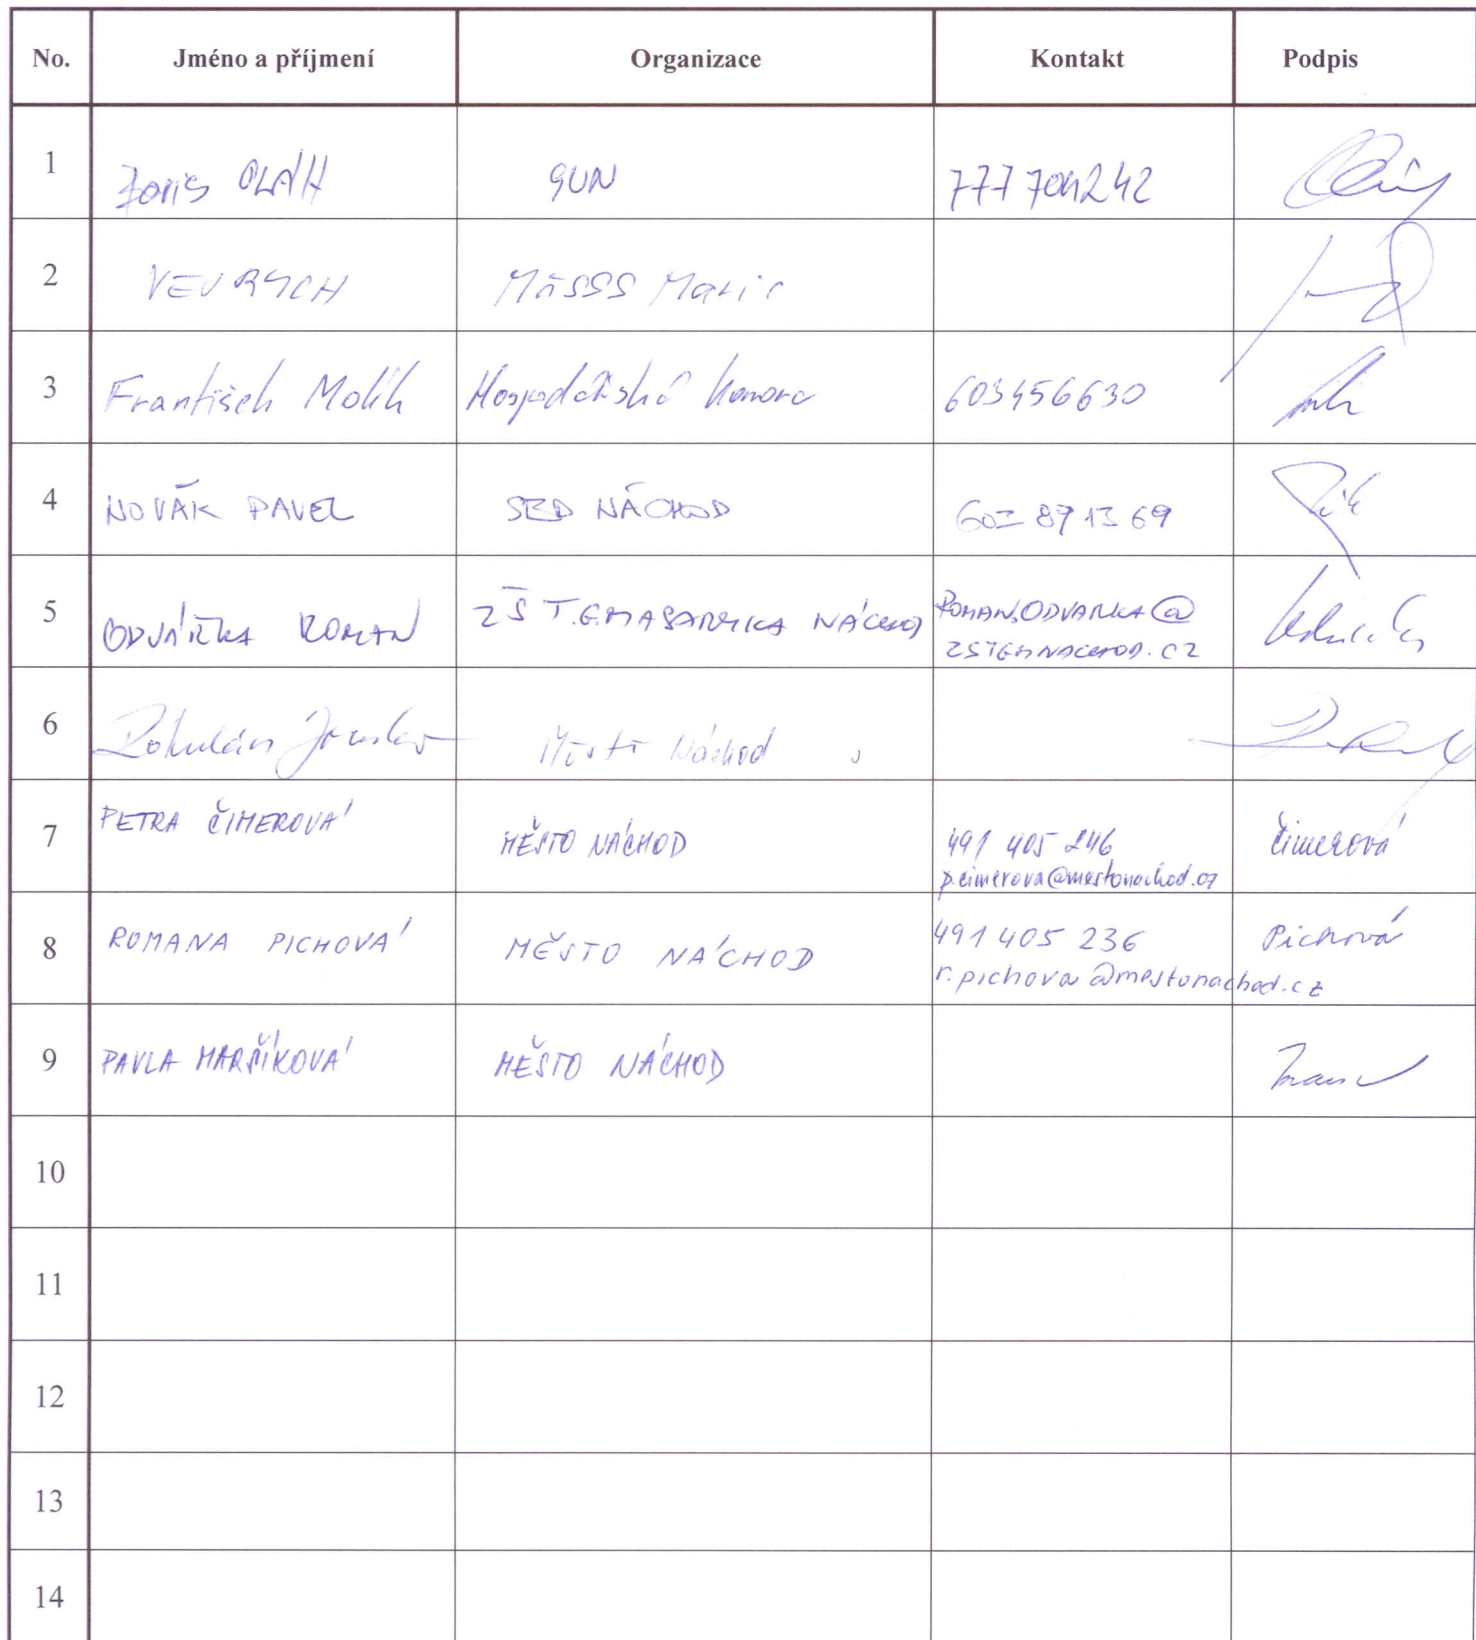 No. Jméno a příjmení Organizace Kontakt Podpis
1 OLÁH 777 704242
2 VEVRYCH MěSSS Marie
3 František Molík Hospodářská komora 603456630
4 NOVÁK PAVEL NÁCHOD 603 87 13 69
5 ODVÁRKA ROMAN ZŠ T.G.MASARYKA NÁCHOD ROMAN.ODVARKA@
ZSTGMNACHOD.CZ
6 Město Náchod
7 PETRA ČIMEROVÁ MĚSTO NÁCHOD 491 405 246 Čimerová
p.cimerova@mestonachod.cz
8 ROMANA PICHOVÁ MĚSTO NÁCHOD 491 405 236 Pichová
r.pichova@mestonachod.cz
9 PAVLA MARŠÍKOVÁ MĚSTO NÁCHOD
10
11
12
13
14